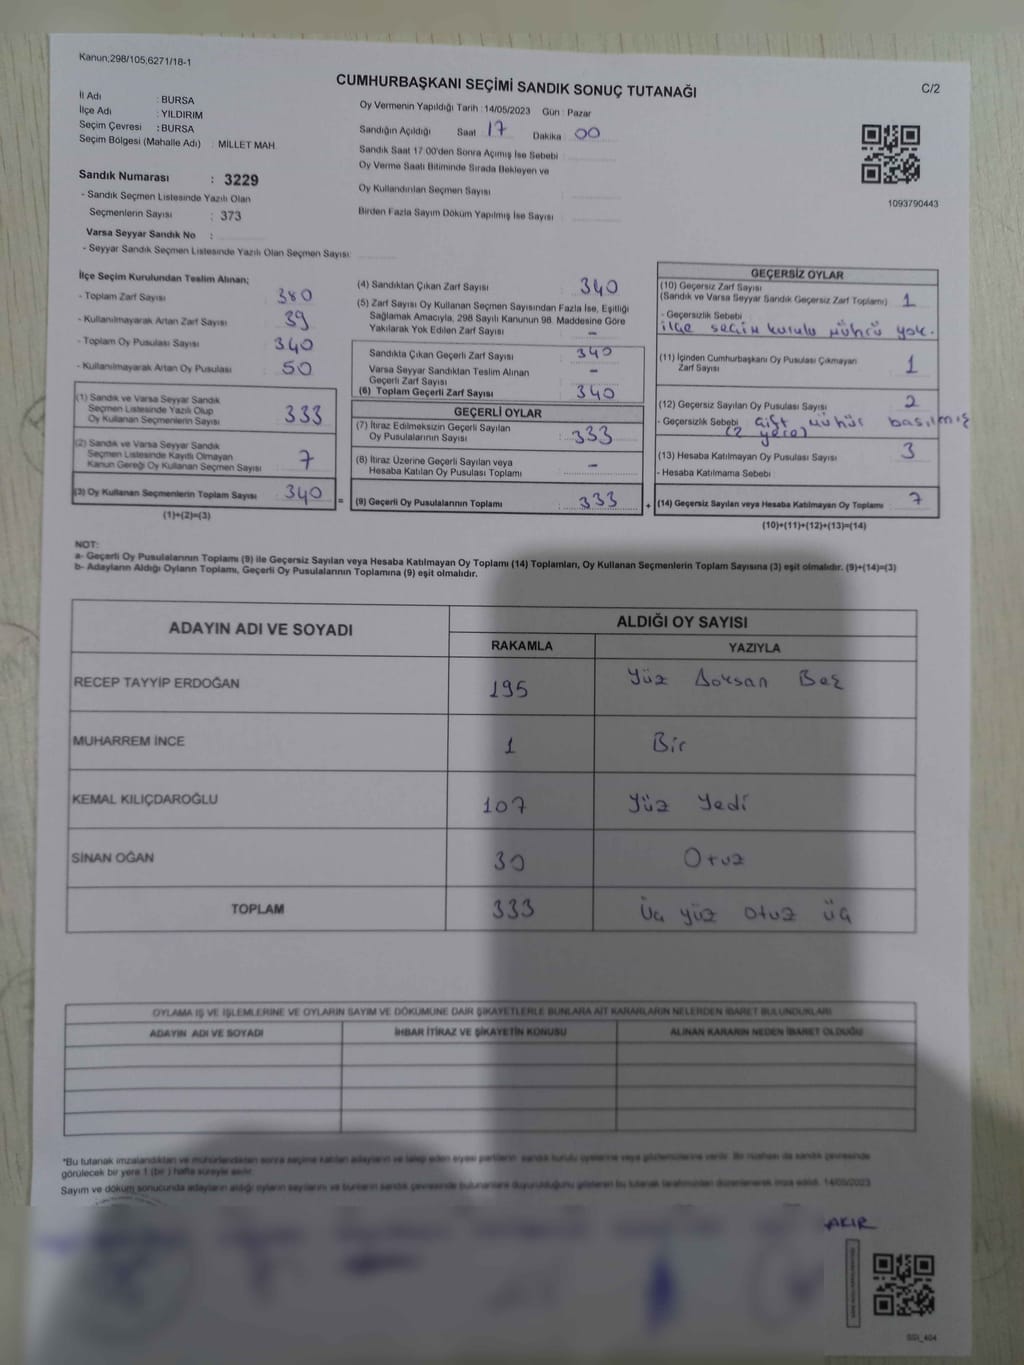 Kanun;298/105,6271/18-1
CUMHURBAŞKANI SEÇİMİ SANDIK SONUÇ TUTANAĞI
C/2
İl Adı : BURSA
İlçe Adı : YILDIRIM
Seçim Çevresi : BURSA
Seçim Bölgesi (Mahalle Adı) : MİLLET MAH.
Sandık Numarası : 3229
- Sandık Seçmen Listesinde Yazılı Olan
Seçmenlerin Sayısı : 373
Varsa Seyyar Sandık No :
- Seyyar Sandık Seçmen Listesinde Yazılı Olan Seçmen Sayısı
Oy Vermenin Yapıldığı Tarih : 14/05/2023 Gün : Pazar
Sandığın Açıldığı Saat 17 Dakika 00
Sandık Saat 17:00'den Sonra Açımış İse Sebebi
Oy Verme Saati Bitiminde Sırada Bekleyen ve
Oy Kullandırılan Seçmen Sayısı
Birden Fazla Sayım Döküm Yapılmış İse Sayısı
1093790443
İlçe Seçim Kurulundan Teslim Alınan;
- Toplam Zarf Sayısı 380
- Kullanılmayarak Artan Zarf Sayısı 39
- Toplam Oy Pusulası Sayısı 340
- Kullanılmayarak Artan Oy Pusulası 50
(1) Sandık ve Varsa Seyyar Sandık
Seçmen Listesinde Yazılı Olup
Oy Kullanan Seçmenlerin Sayısı 333
(2) Sandık ve Varsa Seyyar Sandık
Seçmen Listesinde Kayıtlı Olmayan
Kanun Gereği Oy Kullanan Seçmen Sayısı 7
(3) Oy Kullanan Seçmenlerin Toplam Sayısı 340 =
(1)+(2)=(3)
(4) Sandıktan Çıkan Zarf Sayısı 340
(5) Zarf Sayısı Oy Kullanan Seçmen Sayısından Fazla İse, Eşitliği
Sağlamak Amacıyla, 298 Sayılı Kanunun 98. Maddesine Göre
Yakılarak Yok Edilen Zarf Sayısı -
Sandıkta Çıkan Geçerli Zarf Sayısı 340
Varsa Seyyar Sandıktan Teslim Alınan
Geçerli Zarf Sayısı -
(6) Toplam Geçerli Zarf Sayısı 340
GEÇERLİ OYLAR
(7) İtiraz Edilmeksizin Geçerli Sayılan
Oy Pusulalarının Sayısı 333
(8) İtiraz Üzerine Geçerli Sayılan veya
Hesaba Katılan Oy Pusulası Toplamı -
(9) Geçerli Oy Pusulalarının Toplamı 333 +
GEÇERSİZ OYLAR
(10) Geçersiz Zarf Sayısı
(Sandık ve Varsa Seyyar Sandık Geçersiz Zarf Toplamı) 1
- Geçersizlik Sebebi
ilçe seçim kurulu mührü yok.
(11) İçinden Cumhurbaşkanı Oy Pusulası Çıkmayan
Zarf Sayısı 1
(12) Geçersiz Sayılan Oy Pusulası Sayısı 2
- Geçersizlik Sebebi çift mühür basılmış
(2 yere)
(13) Hesaba Katılmayan Oy Pusulası Sayısı 3
- Hesaba Katılmama Sebebi
(14) Geçersiz Sayılan veya Hesaba Katılmayan Oy Toplamı 7
(10)+(11)+(12)+(13)=(14)
NOT:
a- Geçerli Oy Pusulalarının Toplamı (9) ile Geçersiz Sayılan veya Hesaba Katılmayan Oy Toplamı (14) Toplamları, Oy Kullanan Seçmenlerin Toplam Sayısına (3) eşit olmalıdır. (9)+(14)=(3)
b- Adayların Aldığı Oyların Toplamı, Geçerli Oy Pusulalarının Toplamına (9) eşit olmalıdır.
ADAYIN ADI VE SOYADI
ALDIĞI OY SAYISI
RAKAMLA YAZIYLA
RECEP TAYYİP ERDOĞAN 195 Yüz Doksan Beş
MUHARREM İNCE 1 Bir
KEMAL KILIÇDAROĞLU 107 Yüz Yedi
SİNAN OĞAN 30 Otuz
TOPLAM 333 Üç yüz otuz üç
OYLAMA İŞ VE İŞLEMLERİNE VE OYLARIN SAYIM VE DÖKÜMÜNE DAİR ŞİKAYETLERLE BUNLARA AİT KARARLARIN NELERDEN İBARET BULUNDUKLARI
ADAYIN ADI VE SOYADI İHBAR İTİRAZ VE ŞİKAYETİN KONUSU ALINAN KARARIN NEDEN İBARET OLDUĞU
*Bu tutanak imzalandıktan ve mühürlendikten sonra seçime katılan adayların ve talep eden siyasi partilerin sandık kurulu üyelerine veya gözlemcilerine verilir. Bir nüshası da sandık çevresinde
görülecek bir yere 1 (bir) hafta süreyle asılır.
Sayım ve döküm sonucunda adayların aldığı oyların sayılarını ve bunların sandık çevresinde bulunanlara duyurulduğunu gösteren bu tutanak tarafımızdan düzenlenerek imza edildi. 14/05/2023
AKIR